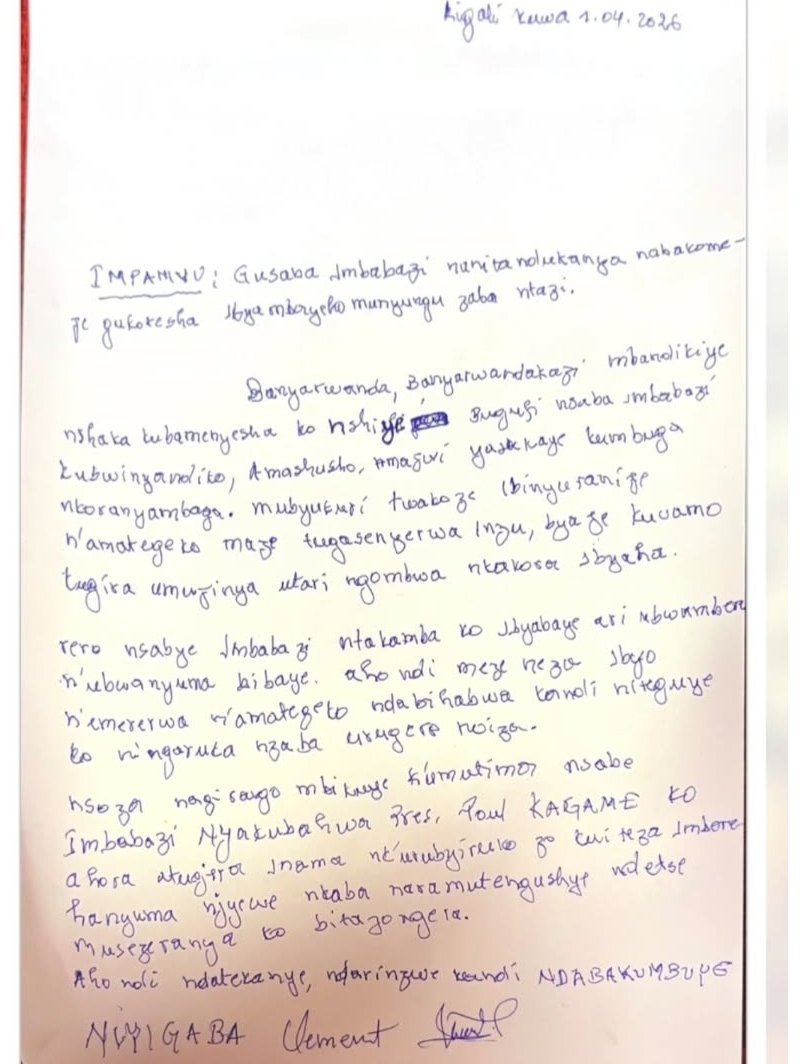 Kigali kuwa 1.04.2026
IMPAMVU: Gusaba Imbabazi nanitandukanya nabakome-
je gukoresha Ibyambayeho munyungu zaba ntazi.
Banyarwanda, Banyarwandakazi mbandikiye
nshaka kubamenyesha ko nshiye bugufi nsaba imbabazi
kubwinyandiko, Amashusho, Amajwi yasakaye kumbuga
nkoranyambaga. mubyukuri twakoze ibinyuranije
n'amategeko maze tugasenyerwa Inzu, byaje kuvamo
tugira umujinya utari ngombwa nkakora ibyaha.
rero nsabye Imbabazi ntakamba ko ibyabaye ari ubwambere
n'ubwanyuma bibaye. aho ndi meze neza ibyo
n'emererwa n'amategeko ndabihabwa kandi niteguye
ko n'ingaruka nzaba urugero rwiza.
nsoza nagirango mbikuye k'umutima nsabe
Imbabazi Nyakubahwa Pres. Poul KAGAME ko
ahora atugira Inama nk'urubyiruko zo kwiteza imbere
hanyuma njyewe nkaba naramutengushye ndetse
musezeranya ko bitazongera.
Aho ndi ndatekanye, ndarinzwe kandi NDABAKUMBUYE
NIYIGABA Clement